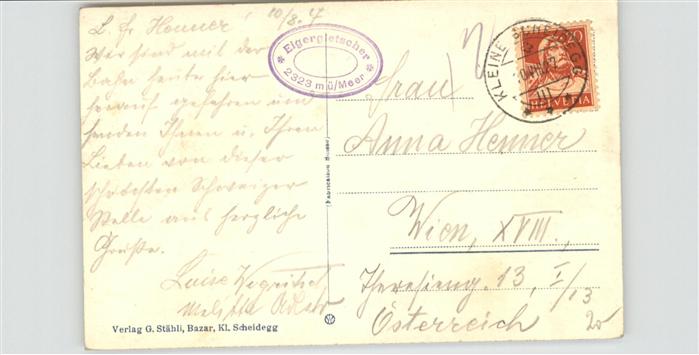 10/8. 7
L. Fr. Henner!
Wir sind mit der
Bahn heute hier
herauf gefahren und
senden Ihnen u. Ihren
Lieben von dieser
schönsten Schweizer
Stelle aus herzliche
Grüße.
Luise
Melitta Adler
Verlag G. Stähli, Bazar, Kl. Scheidegg
Eigergletscher
2323 m ü/Meer
KLEINE SCHEIDEGG
HELVETIA
Frau
Anna Henner
Wien, XVIII.,
Theresieng. 13, I/13
Österreich